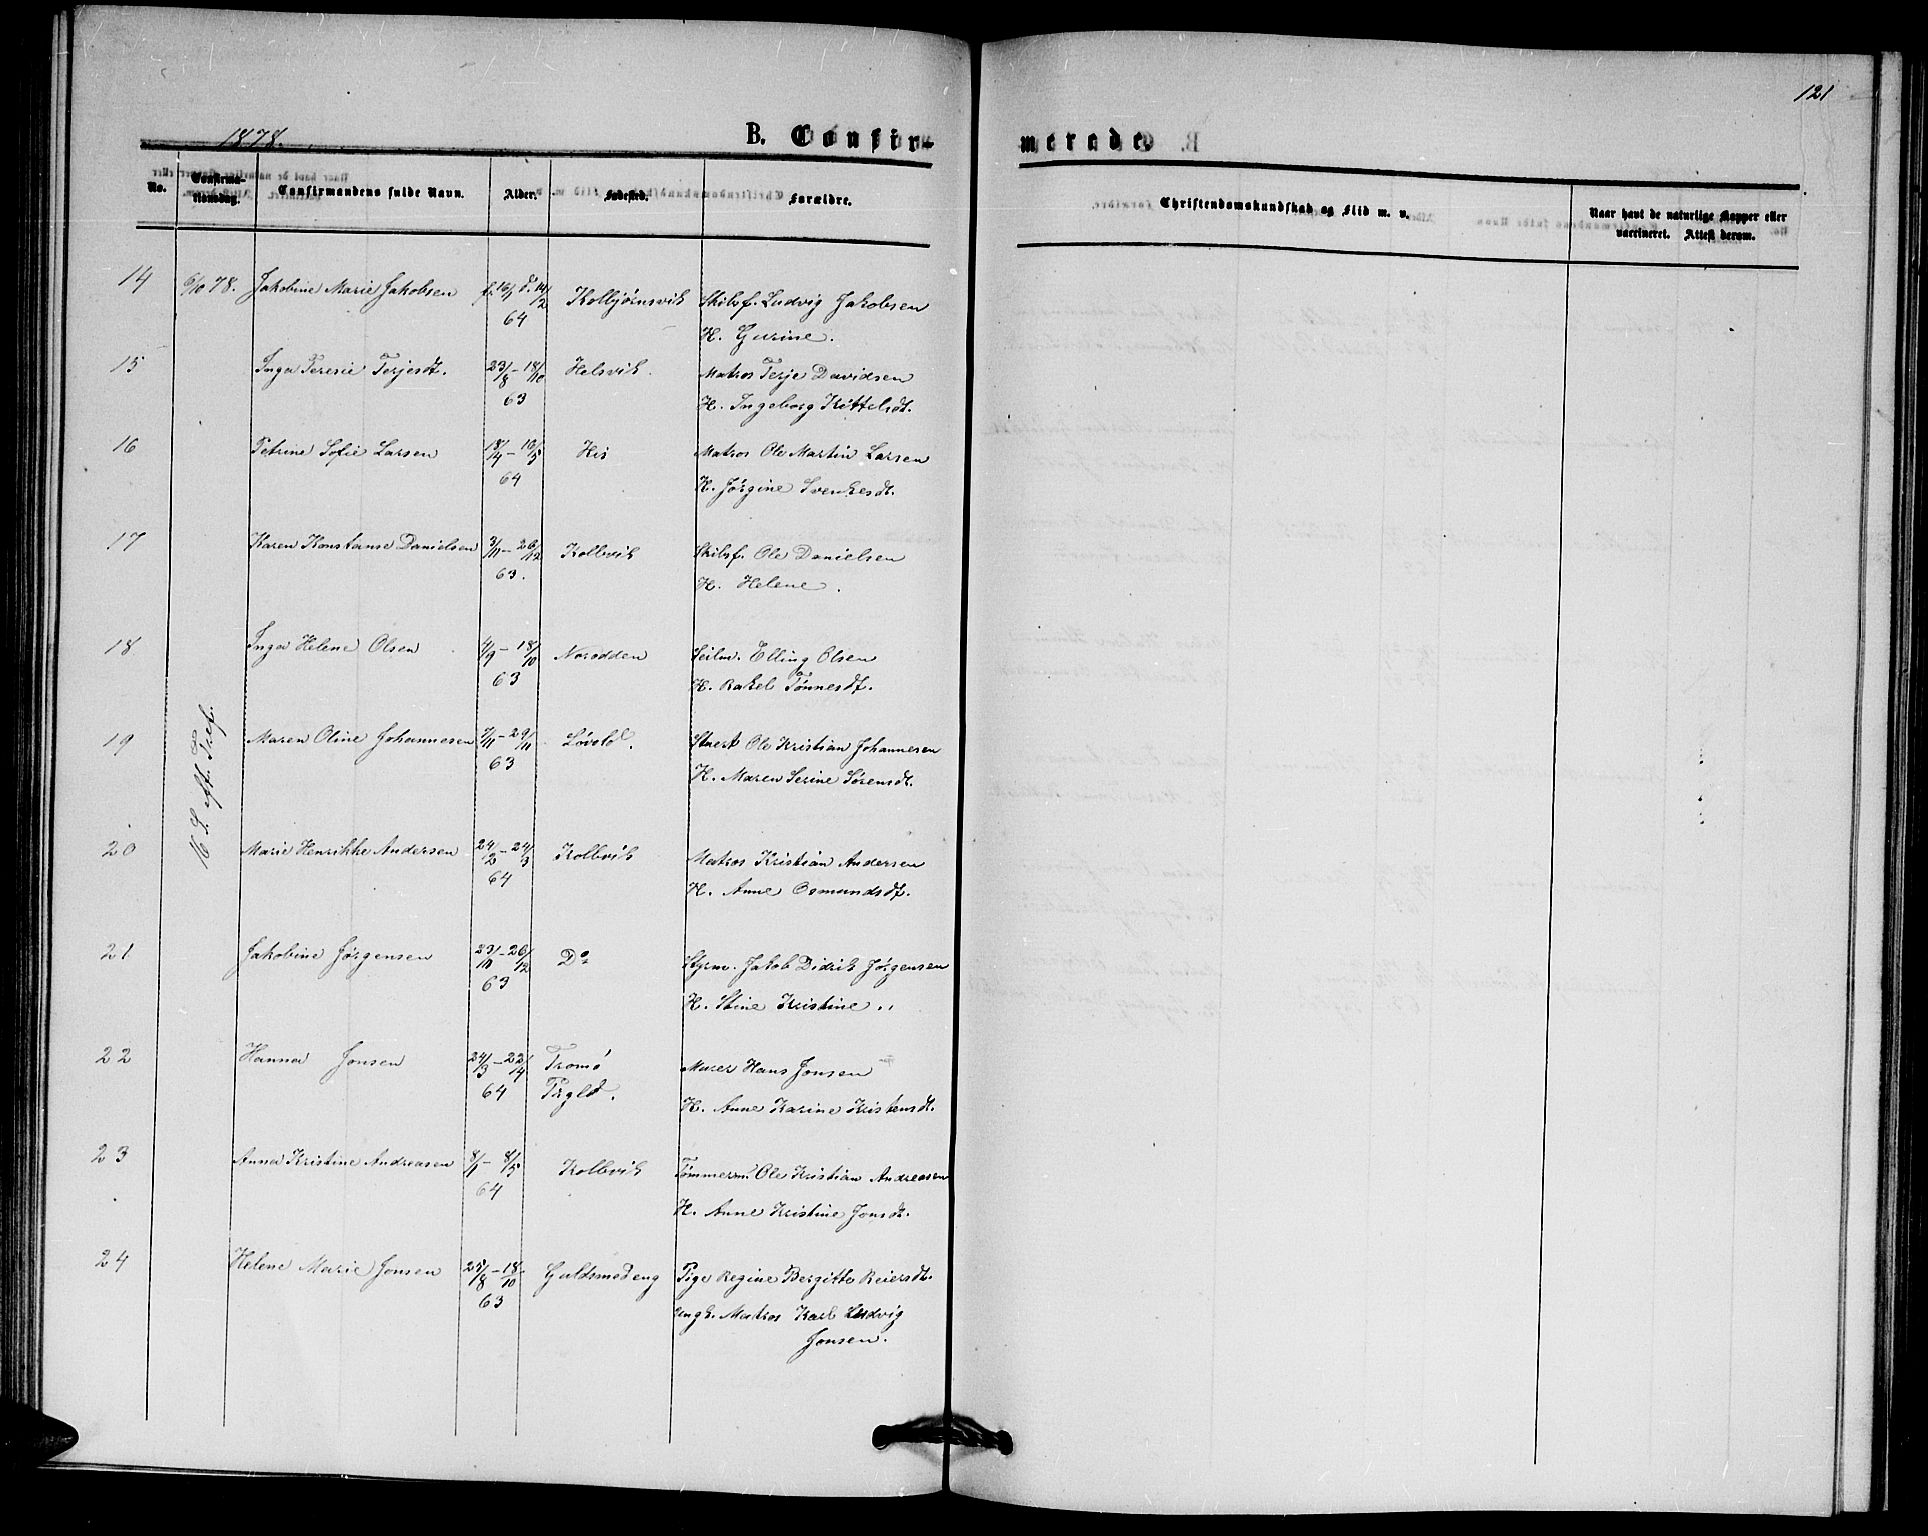 1878.
B. Confir-
merade.
121
No.
Confirma-
tionsdag.
Confirmandens fulde Navn.
Alder.
Fødested.
Forældre.
Christendomskundskab og Flid m. v.
Naar havt de naturlige Kopper eller
vaccineret. Attest derom.
14 6/10 78. Jakobine Marie Jakobsen f. 16/1 d. 14/2 64 Kolbjørnsvik Skibsf. Ludvig Jakobsen
H. Gurine.
15 Inga Teresie Terjesdt. 23/8 - 18/10 63 Helsvik. Matros Terje Davidsen
H. Ingeborg Kittelsdt.
16 Petrine Sofie Larsen 18/4 - 10/5 64 His Matros Ole Martin Larsen
H. Jørgine Svenkesdt.
17 Karen Konstanse Danielsen 3/11 - 26/12 63. Kolbvik Skibsf. Ole Danielsen
H. Helene.
18 Inga Helene Olsen 4/9 - 18/10 63 Norodden Seilm. Elling Olsen
H. Rakel Tønnesdt.
16 S. eft. Tref.
19 Maren Oline Johannesen 7/11 - 29/11 63 Løvold. Stuert Ole Kristian Johannesen
H. Maren Serine Sørensdt.
20 Marie Henrikke Andersen 24/2 - 24/3 64 Kolbvik Matros Kristian Andersen
H. Anne Osmundsdt.
21 Jakobine Jørgensen 23/10 - 26/12 63 Do Styrm. Jakob Didrik Jørgensen
H. Stine Kristine
22 Hanna Jonsen 24/3 - 22/4 64 Tromø
Prgld. Murer Hans Jonsen
H. Anne Karine Kristensdt.
23 Anna Kristine Andreasen 8/1 - 8/5 64 Kolbvik Tømmerm. Ole Kristian Andreasen
H. Anne Kristine Jonsdt.
24 Helene Marie Jonsen 25/8 - 18/10 63 Guldsmedeng Pige Regine Bergitte Reiersdt.
Ungk. Matros Karl Ludvig
Jonsen.